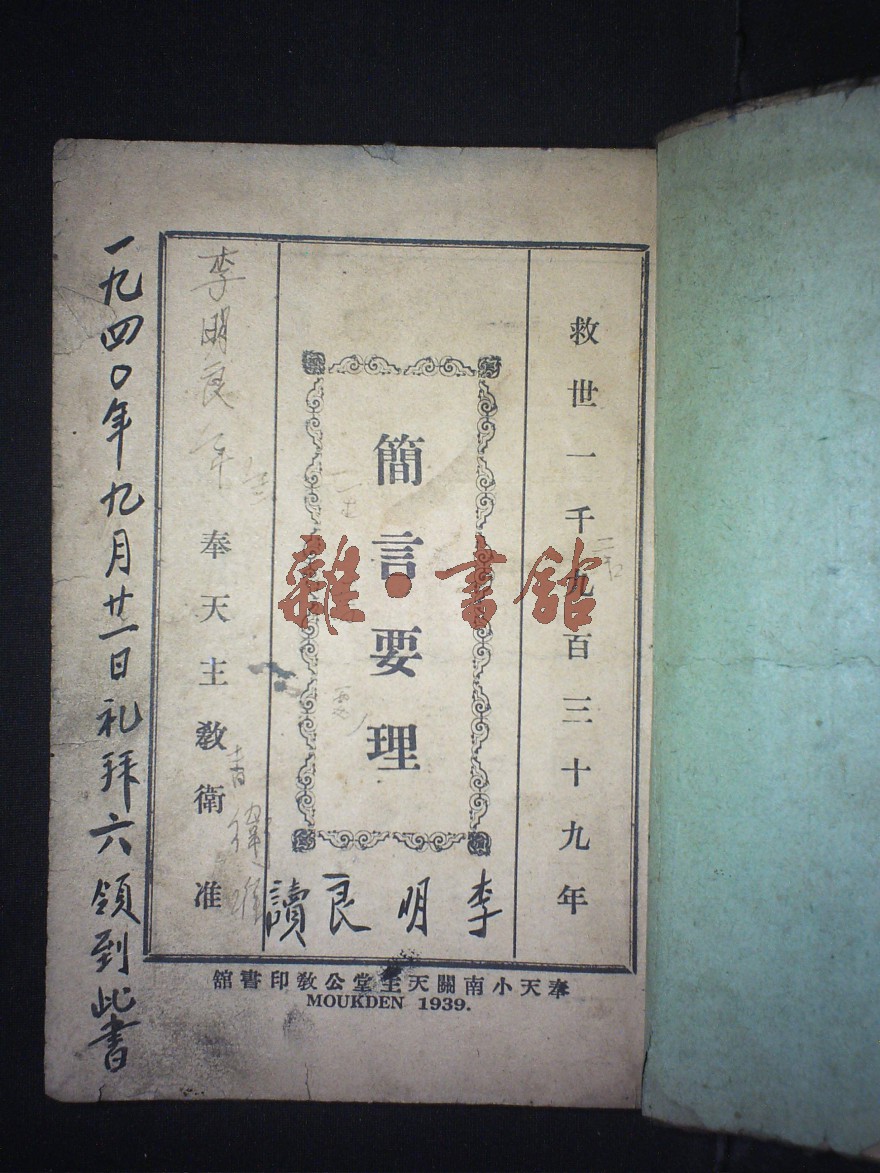 救世一千九百三十九年
簡言要理
李明良讀
李明良
奉天主教衛准
一九四〇年九月廿一日礼拜六領到此書
奉天小南關天主堂公教印書館
MOUKDEN 1939.
雜·書館